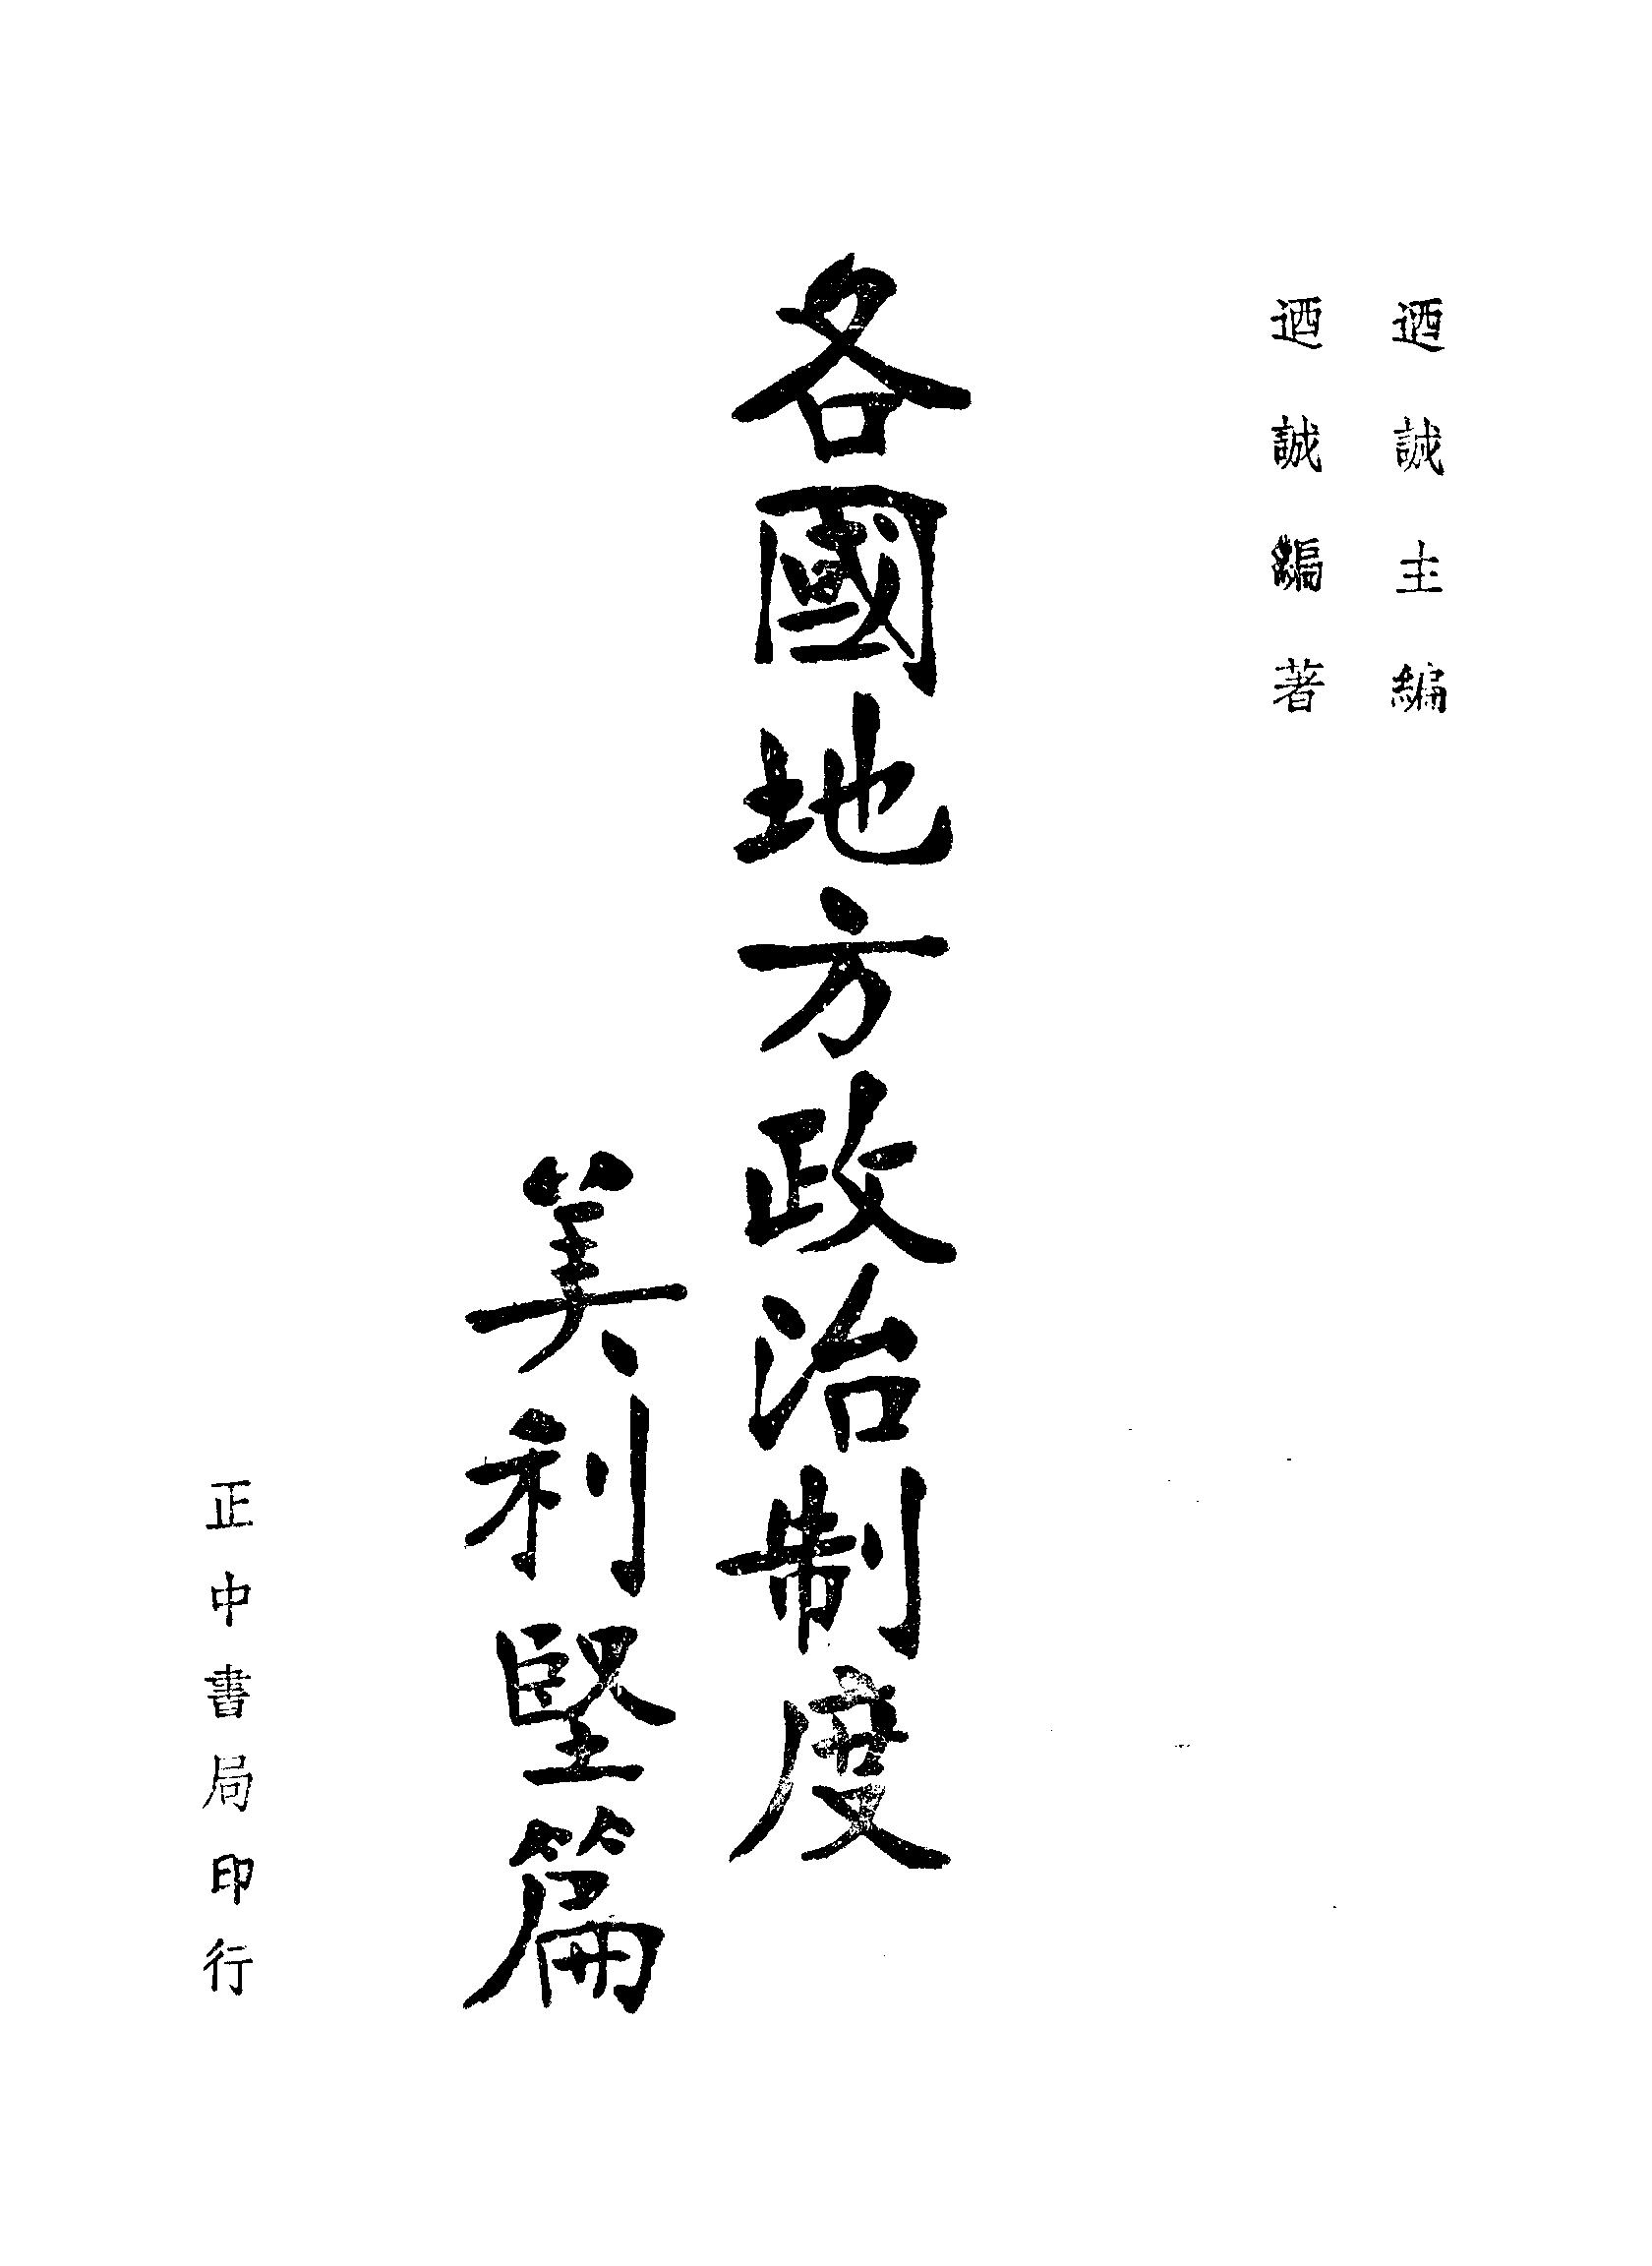 迺誠主編
迺誠編著
各國地方政治制度
美利堅篇
正中書局印行